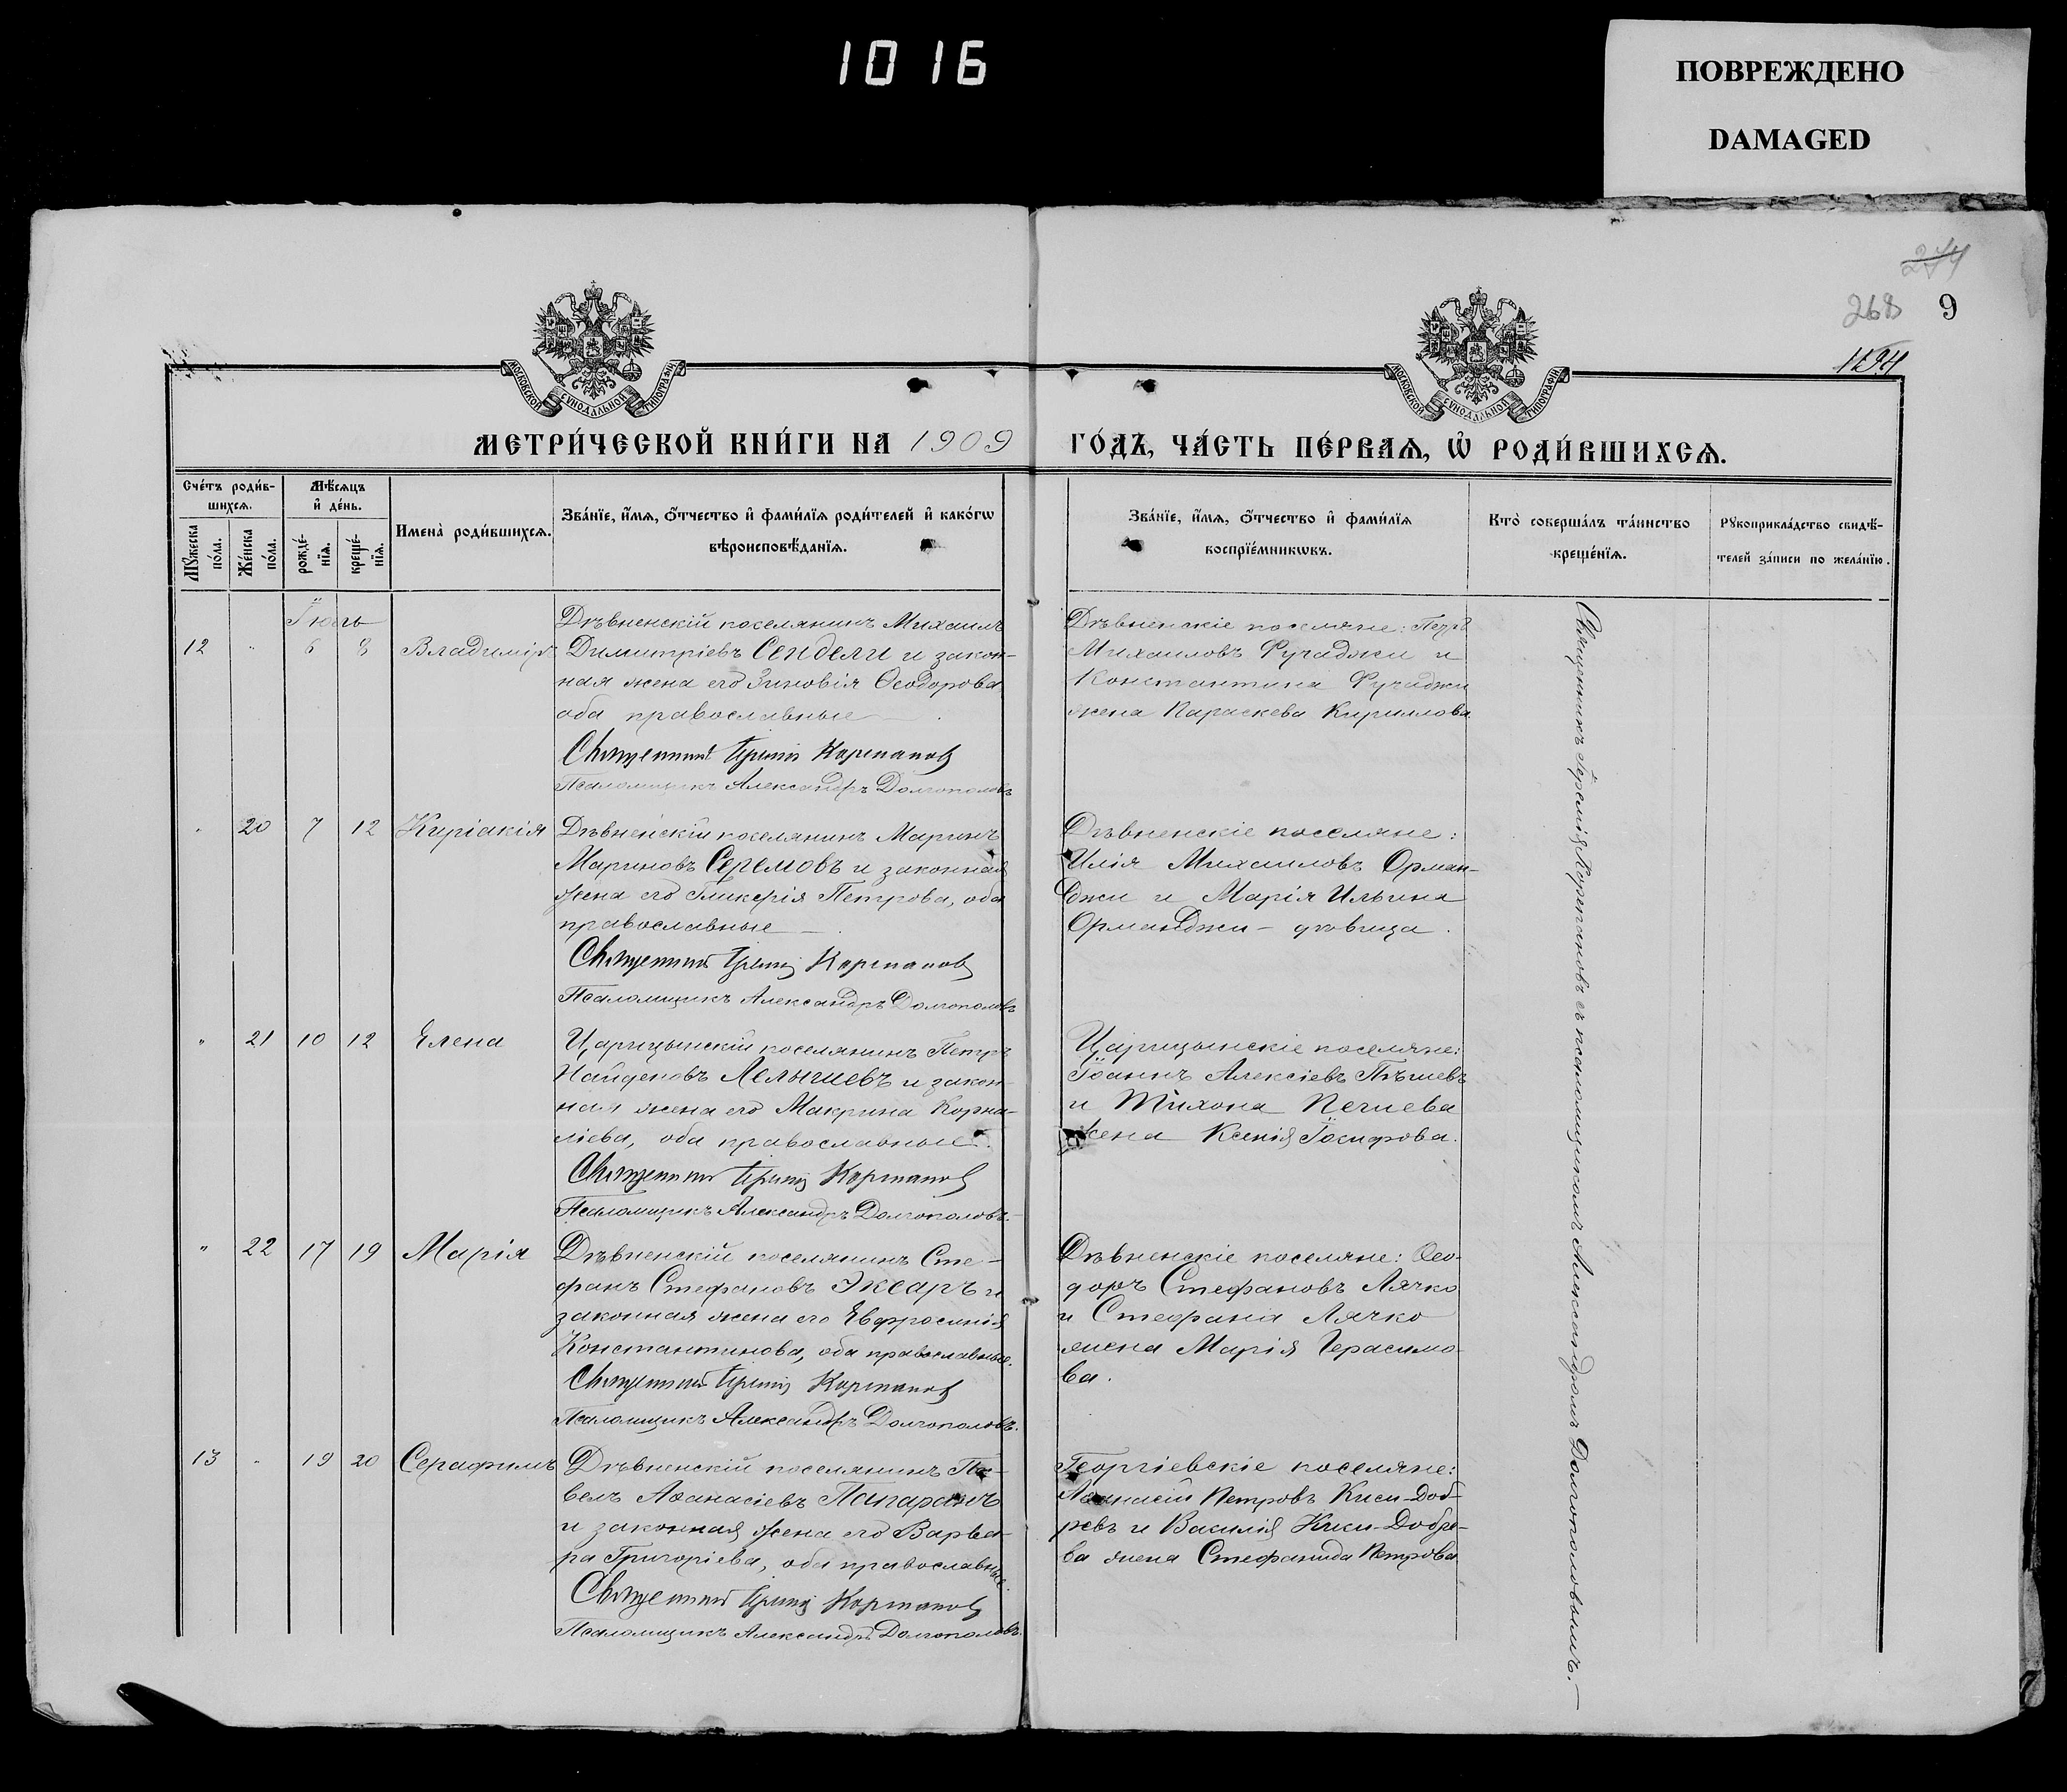 1016
ПОВРЕЖДЕНО
DAMAGED
274
268 9
МОСКОВСКОЙ СѴНОДАЛЬНОЙ ТИПОГРАФІИ
МОСКОВСКОЙ СѴНОДАЛЬНОЙ ТИПОГРАФІИ
МЕТРИ́ЧЕСКОЙ КНИ́ГИ НА 1909
ГО́ДЪ, ЧА́СТЬ ПЕ́РВАѦ, Ѡ҆ РОДИ́ВШИХСѦ.
Сче́тъ роди́в-
шихсѧ.
Мꙋ́жеска по́ла.
Же́нска по́ла.
Мѣ́сѧцъ
и҆ де́нь.
рожде́-
нїѧ.
креще́-
нїѧ.
Имена̀ роди́вшихсѧ.
Зва́нїе, и҆́мѧ, ѻ҆́тчество и҆ фами́лїѧ роди́телей и҆ како́гѡ
вѣроисповѣ́данїѧ.
Зва́нїе, и҆́мѧ, ѻ҆́тчество и҆ фами́лїѧ
воспрїе́мникѡвъ.
Кто̀ соверша́лъ та́инство
креще́нїѧ.
Рꙋкоприкла́дство свидѣ́-
телей за́писи по жела́нїю.
Іюль
12 " 6 8 Владиміръ
Дѣвненскій поселянинъ Михаилъ
Димитріевъ Сендели и закон-
ная жена его Зиновія Ѳеодорова
оба православные
Священникъ Іеремія Кормановъ
Псаломщикъ Александръ Долгополовъ
Дѣвненскіе поселяне: Петръ
Михаиловъ Ручаджи и
Константина Ручаджи
жена Параскева Кириллова
" 20 7 12 Киріакія
Дѣвненскій поселянинъ Маринъ
Мариновъ Серемовъ и законная
жена его Гликерія Петрова, оба
православные
Священникъ Іеремія Кормановъ
Псаломщикъ Александръ Долгополовъ
Дѣвненскіе поселяне:
Илія Михаиловъ Орман-
джи и Марія Ильина
Орманджи - дѣвица.
" 21 10 12 Елена
Царицынскій поселянинъ Петръ
Найденовъ Лелычиевъ и закон-
ная жена его Макрина Корни-
ліева, оба православные.
Священникъ Іеремія Кормановъ
Псаломщикъ Александръ Долгополовъ.
Царицынскіе поселяне:
Іоаннъ Алексіевъ Пѣшевъ
и Тихона Печиева
жена Ксенія Іосифова.
" 22 17 19 Марія
Дѣвненскій поселянинъ Сте-
фанъ Стефановъ Эксаръ и
законная жена его Евфросинія
Константинова, оба православные.
Священникъ Іеремія Кормановъ
Псаломщикъ Александръ Долгополовъ.
Дѣвненскіе поселяне: Ѳео-
доръ Стефановъ Лячко
и Стефана Лячко
жена Марія Герасимо-
ва.
13 " 19 20 Серафимъ
Дѣвненскій поселянинъ Па-
велъ Аѳанасіевъ Папаранъ
и законная жена его Варва-
ра Григоріева, оба православные.
Священникъ Іеремія Кормановъ
Псаломщикъ Александръ Долгополовъ.
Георгіевскіе поселяне:
Аѳанасій Петровъ Киси-Доб-
ревъ и Василія Киси-Добре-
ва жена Стефанида Петрова
Священникъ Іеремія Кормановъ съ псаломщикомъ Александромъ Долгополовымъ.